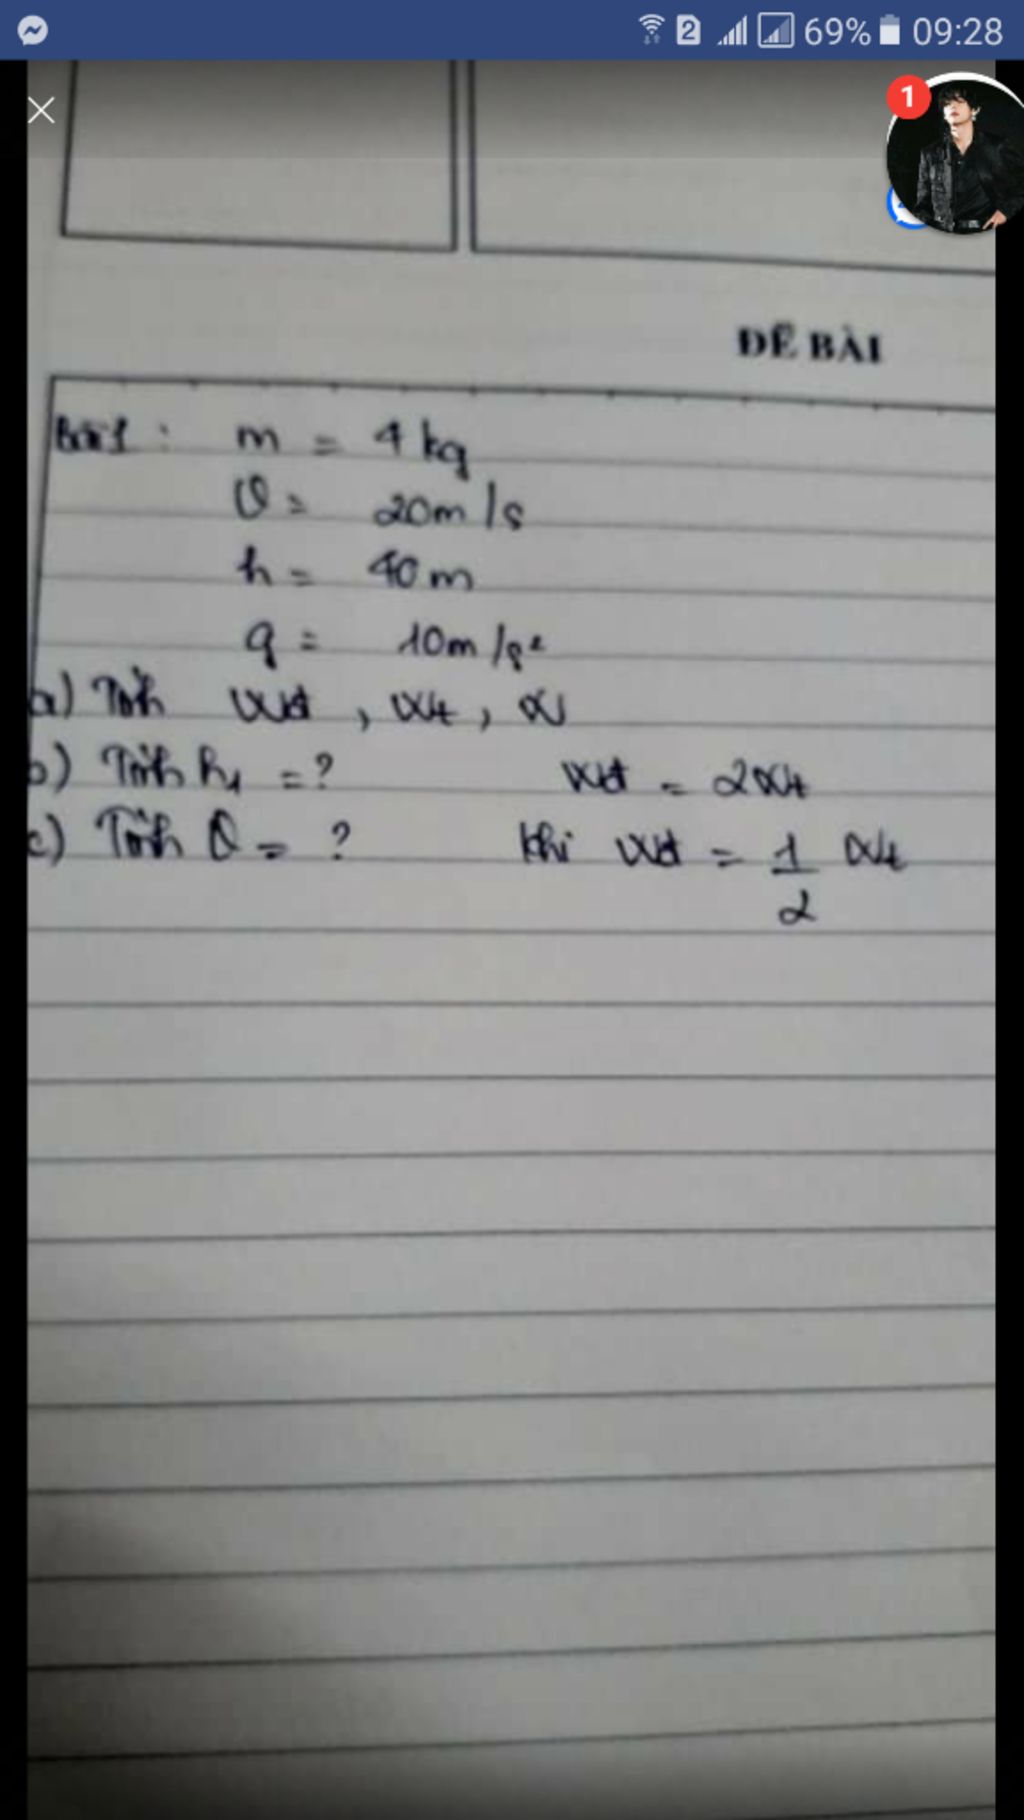 2 69% 09:28
1
ĐỀ BÀI
Bài 1 : m = 4 kg
v = 20m/s
h = 40m
g = 10m/s²
a) Tính Wđ, Wt, W
b) Tính h₁ = ? Wđ = 2Wt
c) Tính v = ? khi Wđ = 1/2 Wt